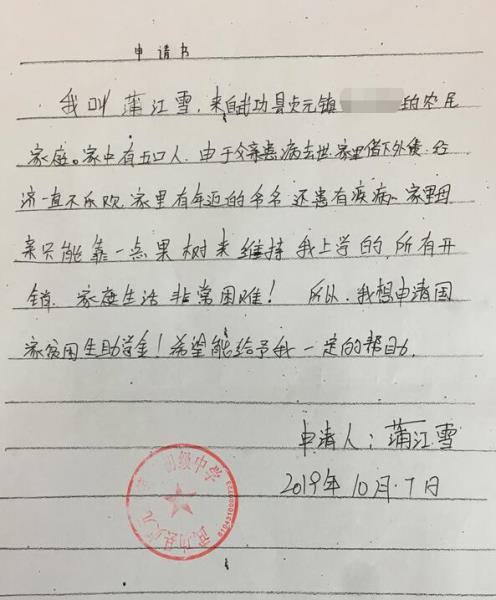 申请书
我叫蒲江雪,来自武功县贞元镇 的农民
家庭。家中有五口人,由于父亲患病去世,家里借下外债,经
济一直不乐观,家里有年迈的爷爷还患有疾病。家里母
亲只能靠一点果树来维持我上学的,所有开
销,家庭生活非常困难!所以,我想申请国
家贫困生助学金!希望能给予我一定的帮助,
申请人:蒲江雪
2019年10月7日
武功县贞元 初级中学